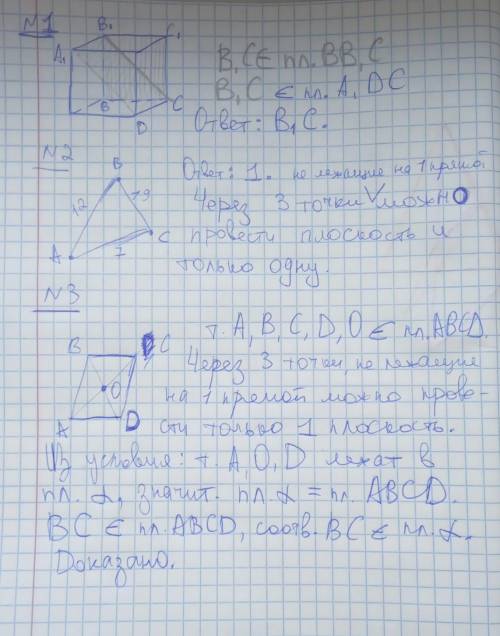 №1
B₁ C₁
A₁
B C
D
B₁C ∈ пл. BB₁C
B₁C ∈ пл. A₁DC
Ответ: B₁C.
№2
B
12 19
A 7 C
Ответ: 1. не лежащие на 1 прямой
Через 3 точки V можно
провести плоскость и
только одну.
№3
B C
O
A D
т. A, B, C, D, O ∈ пл. ABCD.
Через 3 точки, не лежащие
на 1 прямой можно прове-
сти только 1 плоскость.
Из условия: т. A, O, D лежат в
пл. α, значит. пл. α = пл. ABCD.
BC ∈ пл. ABCD, соотв. BC ∈ пл. α.
Доказано.